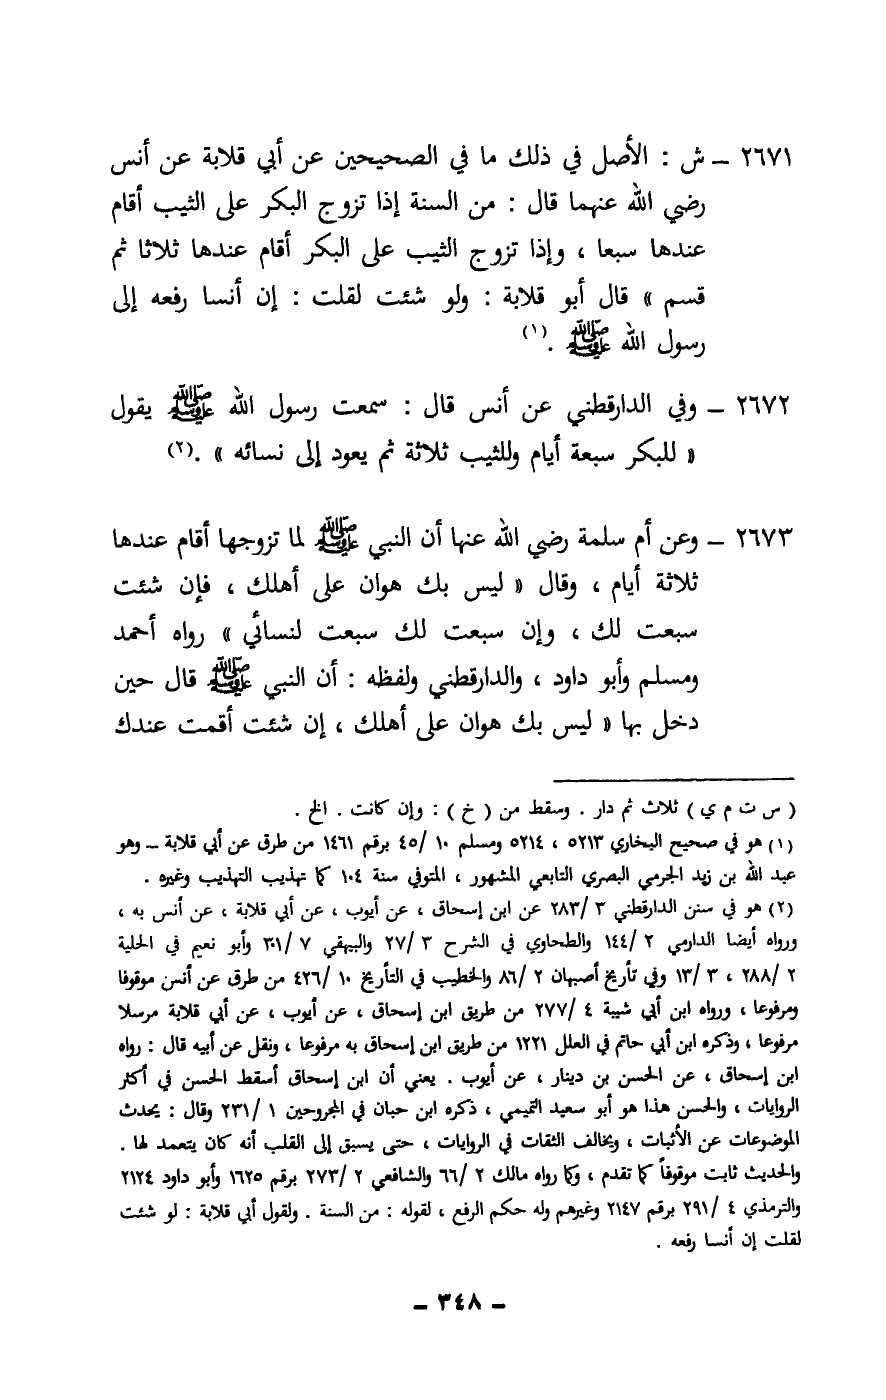 ٢٦٧١ ــ ش : الأصل في ذلك ما في الصحيحين عن أبي قلابة عن أنس
رضي الله عنهما قال : من السنة إذا تزوج البكر على الثيب أقام
عندها سبعا ، وإذا تزوج الثيب على البكر أقام عندها ثلاثا ثم
قسم » قال أبو قلابة : ولو شئت لقلت : إن أنسا رفعه إلى
رسول الله ﷺ .(١)
٢٦٧٢ ــ وفي الدارقطني عن أنس قال : سمعت رسول الله ﷺ يقول
« للبكر سبعة أيام وللثيب ثلاثة ثم يعود إلى نسائه » .(٢)
٢٦٧٣ ــ وعن أم سلمة رضي الله عنها أن النبي ﷺ لما تزوجها أقام عندها
ثلاثة أيام ، وقال « ليس بك هوان على أهلك ، فإن شئت
سبعت لك ، وإن سبعت لك سبعت لنسائي » رواه أحمد
ومسلم وأبو داود ، والدارقطني ولفظه : أن النبي ﷺ قال حين
دخل بها « ليس بك هوان على أهلك ، إن شئت أقمت عندك
( س ت م ي ) ثلاث ثم دار . وسقط من ( خ ) : وإن كانت . الخ .
(١) هو في صحيح البخاري ٥٢١٣ ، ٥٢١٤ ومسلم ١٠ /٤٥ برقم ١٤٦١ من طرق عن أبي قلابة ــ وهو
عبد الله بن زيد الجرمي البصري التابعي المشهور ، المتوفي سنة ١٠٤ كما تهذيب التهذيب وغيره .
(٢) هو في سنن الدارقطني ٣ /٢٨٣ عن ابن إسحاق ، عن أيوب ، عن أبي قلابة ، عن أنس به ،
ورواه أيضا الدارمي ٢ /١٤٤ والطحاوي في الشرح ٣ /٢٧ والبيهقي ٧ /٣٠١ وأبو نعيم في الحلية
٢ /٢٨٨ ، ٣ /١٣ وفي تأريخ أصبهان ٢ /٨٦ والخطيب في التأريخ ١٠ /٤٢٦ من طرق عن أنس موقوفا
ومرفوعا ، ورواه ابن أبي شيبة ٤ /٢٧٧ من طريق ابن إسحاق ، عن أيوب ، عن أبي قلابة مرسلا
مرفوعا ، وذكره ابن أبي حاتم في العلل ١٢٢١ من طريق ابن إسحاق به مرفوعا ، ونقل عن أبيه قال : رواه
ابن إسحاق ، عن الحسن بن دينار ، عن أيوب . يعني أن ابن إسحاق أسقط الحسن في أكثر
الروايات ، والحسن هذا هو أبو سعيد التميمي ، ذكره ابن حبان في المجروحين ١ /٢٣١ وقال : يحدث
الموضوعات عن الأثبات ، ويخالف الثقات في الروايات ، حتى يسبق إلى القلب أنه كان يتعمد لها .
والحديث ثابت موقوفاً كما تقدم ، وكما رواه مالك ٢ /٦٦ والشافعي ٢ /٢٧٣ برقم ١٦٢٥ وأبو داود ٢١٢٤
والترمذي ٤ /٢٩١ برقم ٢١٤٧ وغيرهم وله حكم الرفع ، لقوله : من السنة . ولقول أبي قلابة : لو شئت
لقلت إن أنسا رفعه .
ــ ٣٤٨ ــ